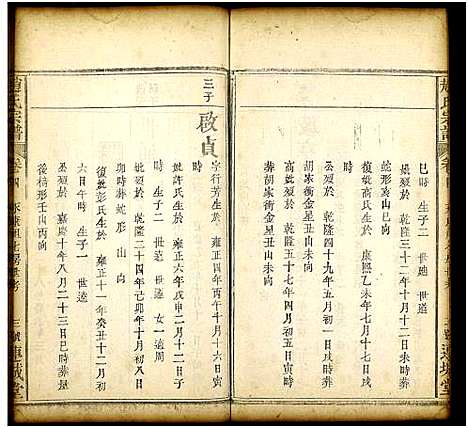 趙氏宗譜
卷
連城堂
巳時 生子二 世適 世通
公歿於 乾隆三十二年十月十二未時葬
蛇形亥山巳向
復妣高氏生於 康熙乙九年十一月初六日 時
妣歿於 乾隆四十九年五月初三日 時葬
胡家衝金星丑山未向
公歿於 乾隆五十七年四月初五日寅時
葬胡家衝金星丑山未向
三子 啟貞
字行芳生於 雍正四年丙午年十月十六日寅
時
妣許氏生於 雍正六年戊申二月十二日 子
時 生子二 世遠 世達 女一適周
妣歿於 乾隆二十四年己卯年十月初八日
卯時葬蛇形 山 向
復妣彭氏生於 雍正十一年癸丑十二月初
六日午時 生子一 世逵
公歿於 嘉慶十年八月二十三日巳時葬
後橋形壬山丙向
趙氏宗譜
卷四
三號
連城堂